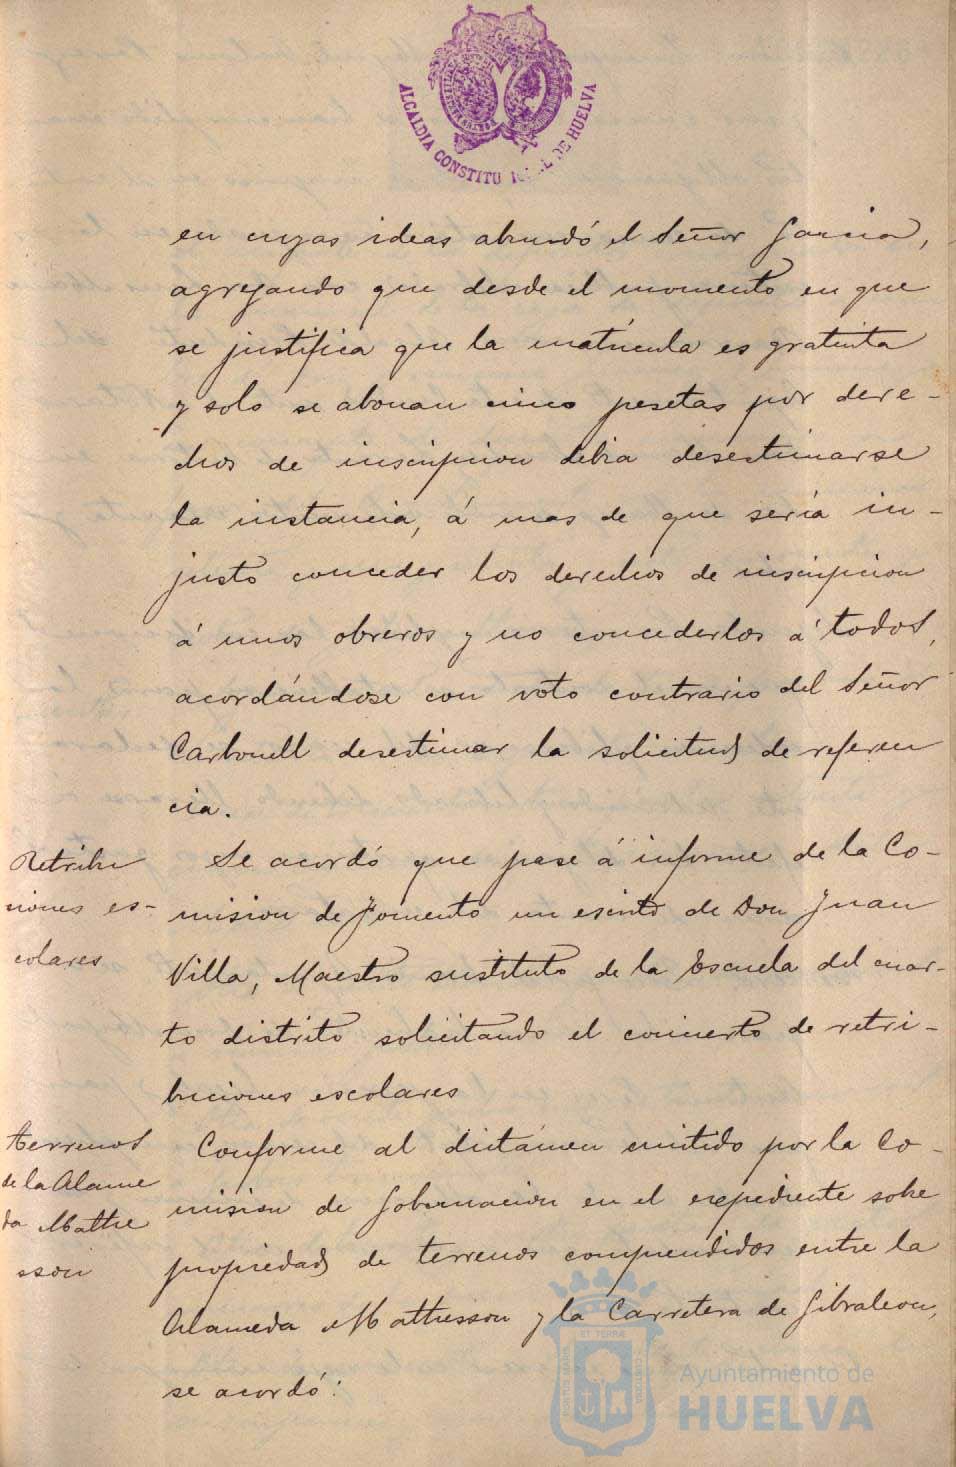 ALCALDIA CONSTITU AL DE HUELVA
en cuyas ideas abundó el Señor Garcia,
agregando que desde el momento en que
se justifica que la matrícula es gratuita
y solo se abonan cinco pesetas por dere-
chos de inscripcion debia desestimarse
la instancia, á mas de que sería in-
justo conceder los derechos de inscripcion
á unos obreros y no concederlos á todos,
acordándose con voto contrario del Señor
Carbonell desestimar la solicitud de referen
cia.
Retribu
ciones es-
colares
Se acordó que pase á informe de la Co-
mision de Fomento un escrito de Don Juan
Villa, Maestro sustituto de la Escuela del cuar-
to distrito solicitando el concierto de retri-
buciones escolares
Terrenos
de la Alame
da Mathe
sson
Conforme al dictámen emitido por la Co-
mision de Gobernacion en el expediente sobre
propiedad de terrenos comprendidos entre la
Alameda Mathesson y la Carretera de Gibraleon,
se acordó:
PORTUS MARIS
ET TERRÆ
CUSTODIA
Ayuntamiento de
HUELVA